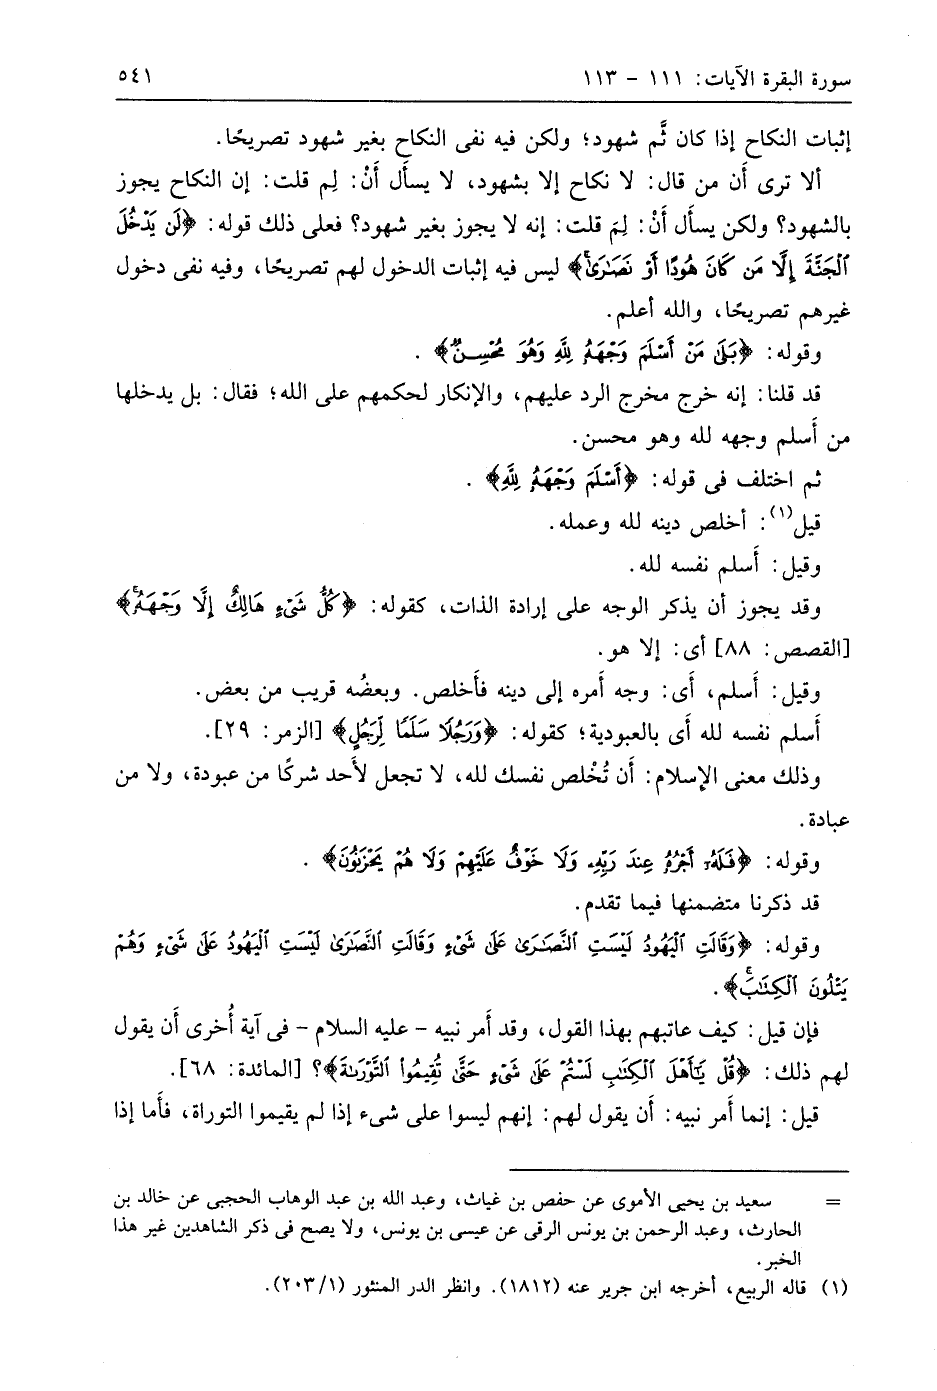 سورة البقرة الآيات: ١١١ - ١١٣ ٥٤١
إثبات النكاح إذا كان ثَّم شهود؛ ولكن فيه نفى النكاح بغير شهود تصريحًا.
ألا ترى أن من قال: لا نكاح إلا بشهود، لا يسأل أَنْ: لِم قلت: إن النكاح يجوز
بالشهود؟ ولكن يسأل أَنْ: لِمَ قلت: إنه لا يجوز بغير شهود؟ فعلى ذلك قوله: ﴿لَن يَدْخُلَ
ٱلْجَنَّةَ إِلَّا مَن كَانَ هُودًا أَوْ نَصَٰرَىٰۗ﴾ ليس فيه إثبات الدخول لهم تصريحًا، وفيه نفى دخول
غيرهم تصريحًا، والله أعلم.
وقوله: ﴿بَلَىٰ مَنْ أَسْلَمَ وَجْهَهُۥ لِلَّهِ وَهُوَ مُحْسِنٌ﴾ .
قد قلنا: إنه خرج مخرج الرد عليهم، والإنكار لحكمهم على الله؛ فقال: بل يدخلها
من أَسلم وجهه لله وهو محسن.
ثم اختلف فى قوله: ﴿أَسْلَمَ وَجْهَهُۥ لِلَّهِ﴾ .
قيل(١): أخلص دينه لله وعمله.
وقيل: أَسلم نفسه لله.
وقد يجوز أن يذكر الوجه على إرادة الذات، كقوله: ﴿كُلُّ شَىْءٍ هَالِكٌ إِلَّا وَجْهَهُۥۚ﴾
[القصص: ٨٨] أى: إلا هو.
وقيل: أَسلم، أَى: وجه أمره إلى دينه فأَخلص. وبعضُه قريب من بعض.
أَسلم نفسه لله أى بالعبودية؛ كقوله: ﴿وَرَجُلًا سَلَمًا لِّرَجُلٍ﴾ [الزمر: ٢٩].
وذلك معنى الإسلام: أَن تُخْلص نفسك لله، لا تجعل لأَحد شركًا من عبودة، ولا من
عبادة.
وقوله: ﴿فَلَهُۥٓ أَجْرُهُۥ عِندَ رَبِّهِۦ وَلَا خَوْفٌ عَلَيْهِمْ وَلَا هُمْ يَحْزَنُونَ﴾ .
قد ذكرنا متضمنها فيما تقدم.
وقوله: ﴿وَقَالَتِ ٱلْيَهُودُ لَيْسَتِ ٱلنَّصَٰرَىٰ عَلَىٰ شَىْءٍ وَقَالَتِ ٱلنَّصَٰرَىٰ لَيْسَتِ ٱلْيَهُودُ عَلَىٰ شَىْءٍ وَهُمْ
يَتْلُونَ ٱلْكِتَٰبَۗ﴾.
فإن قيل: كيف عاتبهم بهذا القول، وقد أَمر نبيه - عليه السلام - فى آية أُخرى أَن يقول
لهم ذلك: ﴿قُلْ يَٰٓأَهْلَ ٱلْكِتَٰبِ لَسْتُمْ عَلَىٰ شَىْءٍ حَتَّىٰ تُقِيمُوا۟ ٱلتَّوْرَىٰةَ﴾؟ [المائدة: ٦٨].
قيل: إنما أَمر نبيه: أَن يقول لهم: إنهم ليسوا على شىء إذا لم يقيموا التوراة، فأَما إذا
= سعيد بن يحيى الأموى عن حفص بن غياث، وعبد الله بن عبد الوهاب الحجبى عن خالد بن
الحارث، وعبد الرحمن بن يونس الرقى عن عيسى بن يونس، ولا يصح فى ذكر الشاهدين غير هذا
الخبر.
(١) قاله الربيع، أخرجه ابن جرير عنه (١٨١٢). وانظر الدر المنثور (٢٠٣/١).